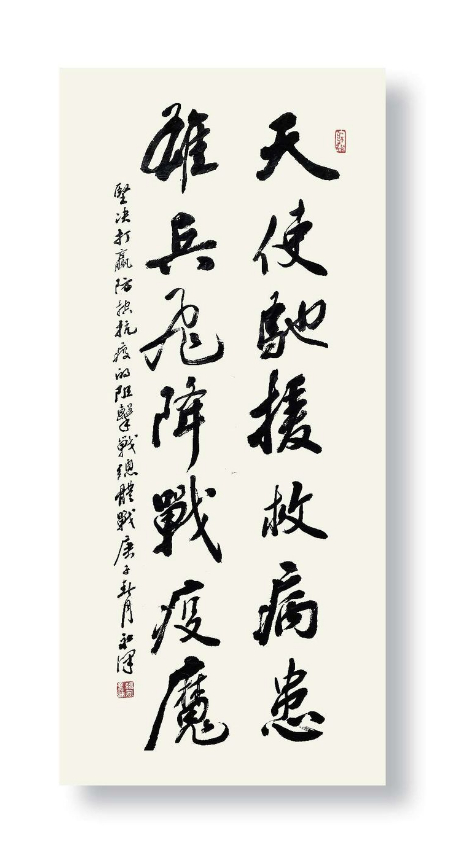 天使馳援救病患
雄兵飛降戰疫魔
堅决打贏防控抗疫的阻擊戰總體戰庚子新月永澤